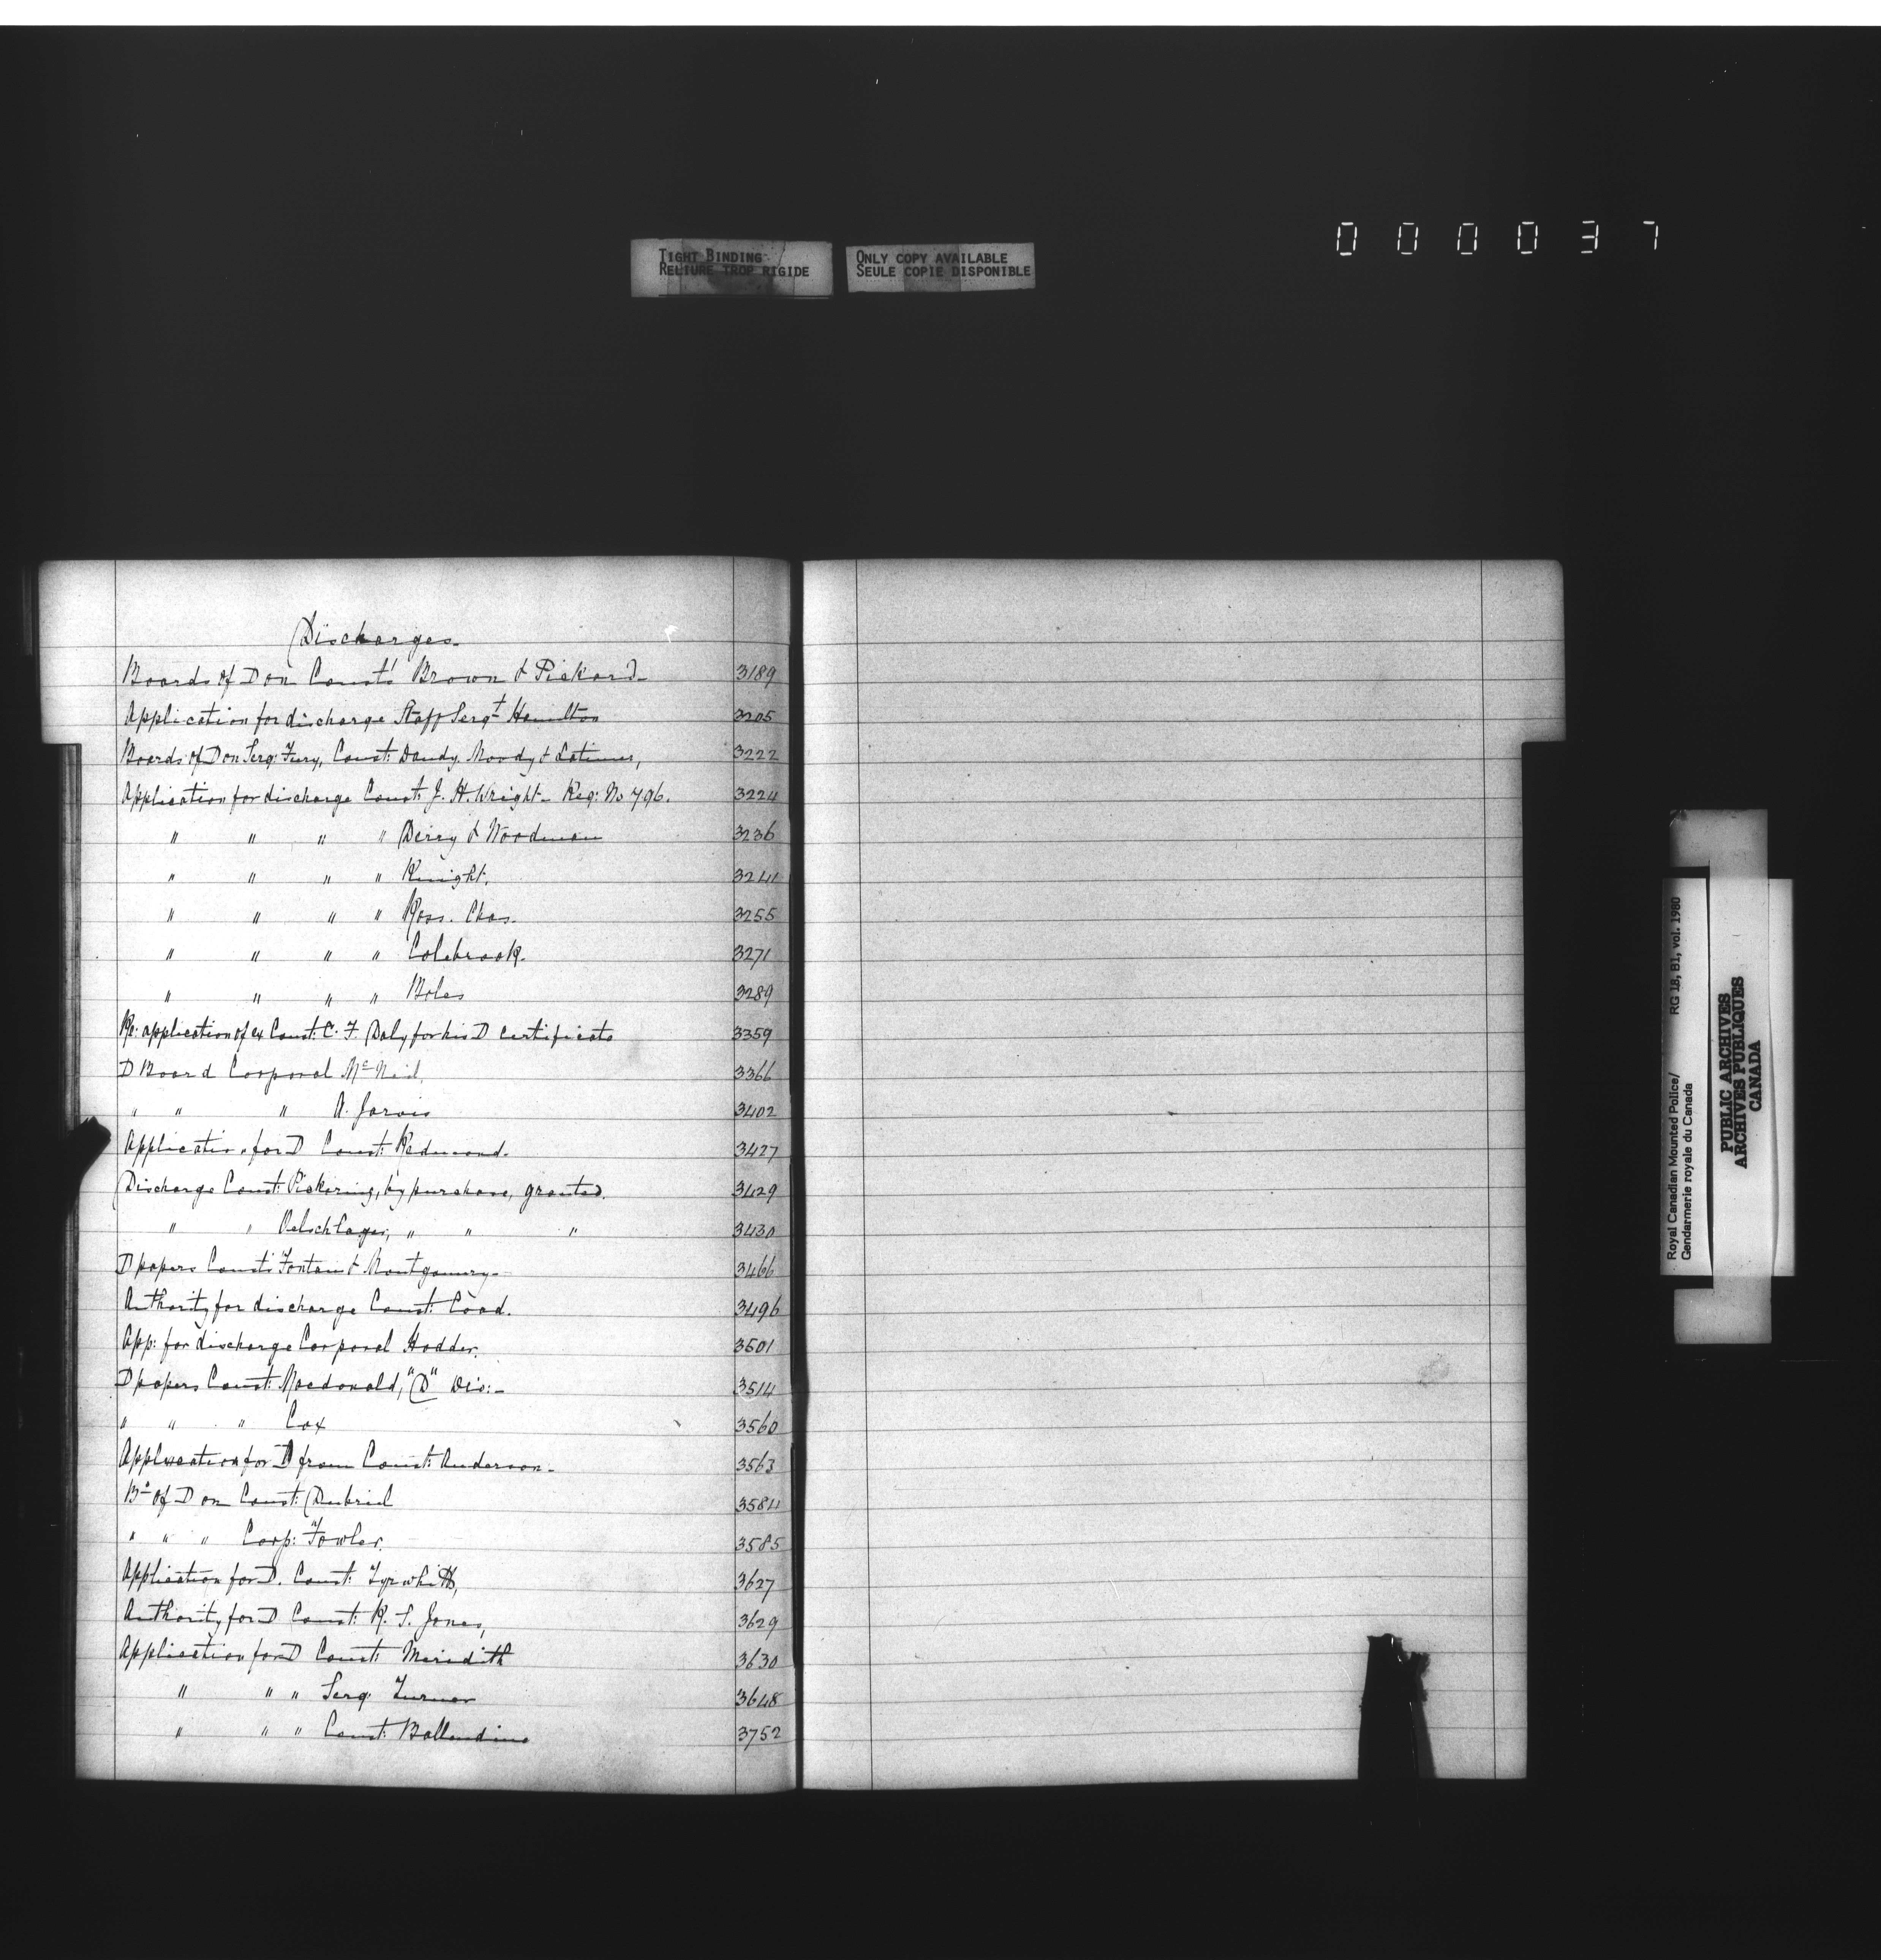 000037
TIGHT BINDING
RELIURE TROP RIGIDE
ONLY COPY AVAILABLE
SEULE COPIE DISPONIBLE
Discharges.
Boards of D on Consts Brown & Pickard 3189
Application for discharge Staff Sergt Hamilton 3205
Boards of D on Serg: Fury, Const: Dandy, Moody & Latimer, 3222
Application for discharge Const: J. H. Wright - Reg: No 796. 3224
" " " " Derry & Woodman 3236
" " " " Knight. 3241
" " " " Ross. Chas. 3255
" " " " Colebrook. 3271
" " " " Boles 3289
Re: application of ex Const: C. F. Daly for his D certificate 3359
D Board Corporal McNeil. 3366
" " " A. Jarvis 3402
Application for D Const: Redmond. 3427
Discharge Const: Pickering, by purchase, granted. 3429
" " Oelschlager, " " " 3430
D papers Consts: & Montgomery - 3466
Authority for discharge Const: Coad. 3496
App: for discharge Corporal Hodder. 3501
D papers Const: Macdonald, "D" Div: - 3514
" " " Cox 3560
Application for D from Const: Anderson - 3563
Bd of D on Const: Dubriel 3584
" " " Corp: Fowler. 3585
Application for D. Const: Tyrwhitt, 3627
Authority for D Const: R. S. Jones, 3629
Application for D Const: Meridith 3630
" " " Serg: Turner 3648
" " " Const: Ballendine 3752
Royal Canadian Mounted Police/ RG 18, B1, vol. 1980
Gendarmerie royale du Canada
PUBLIC ARCHIVES
ARCHIVES PUBLIQUES
CANADA